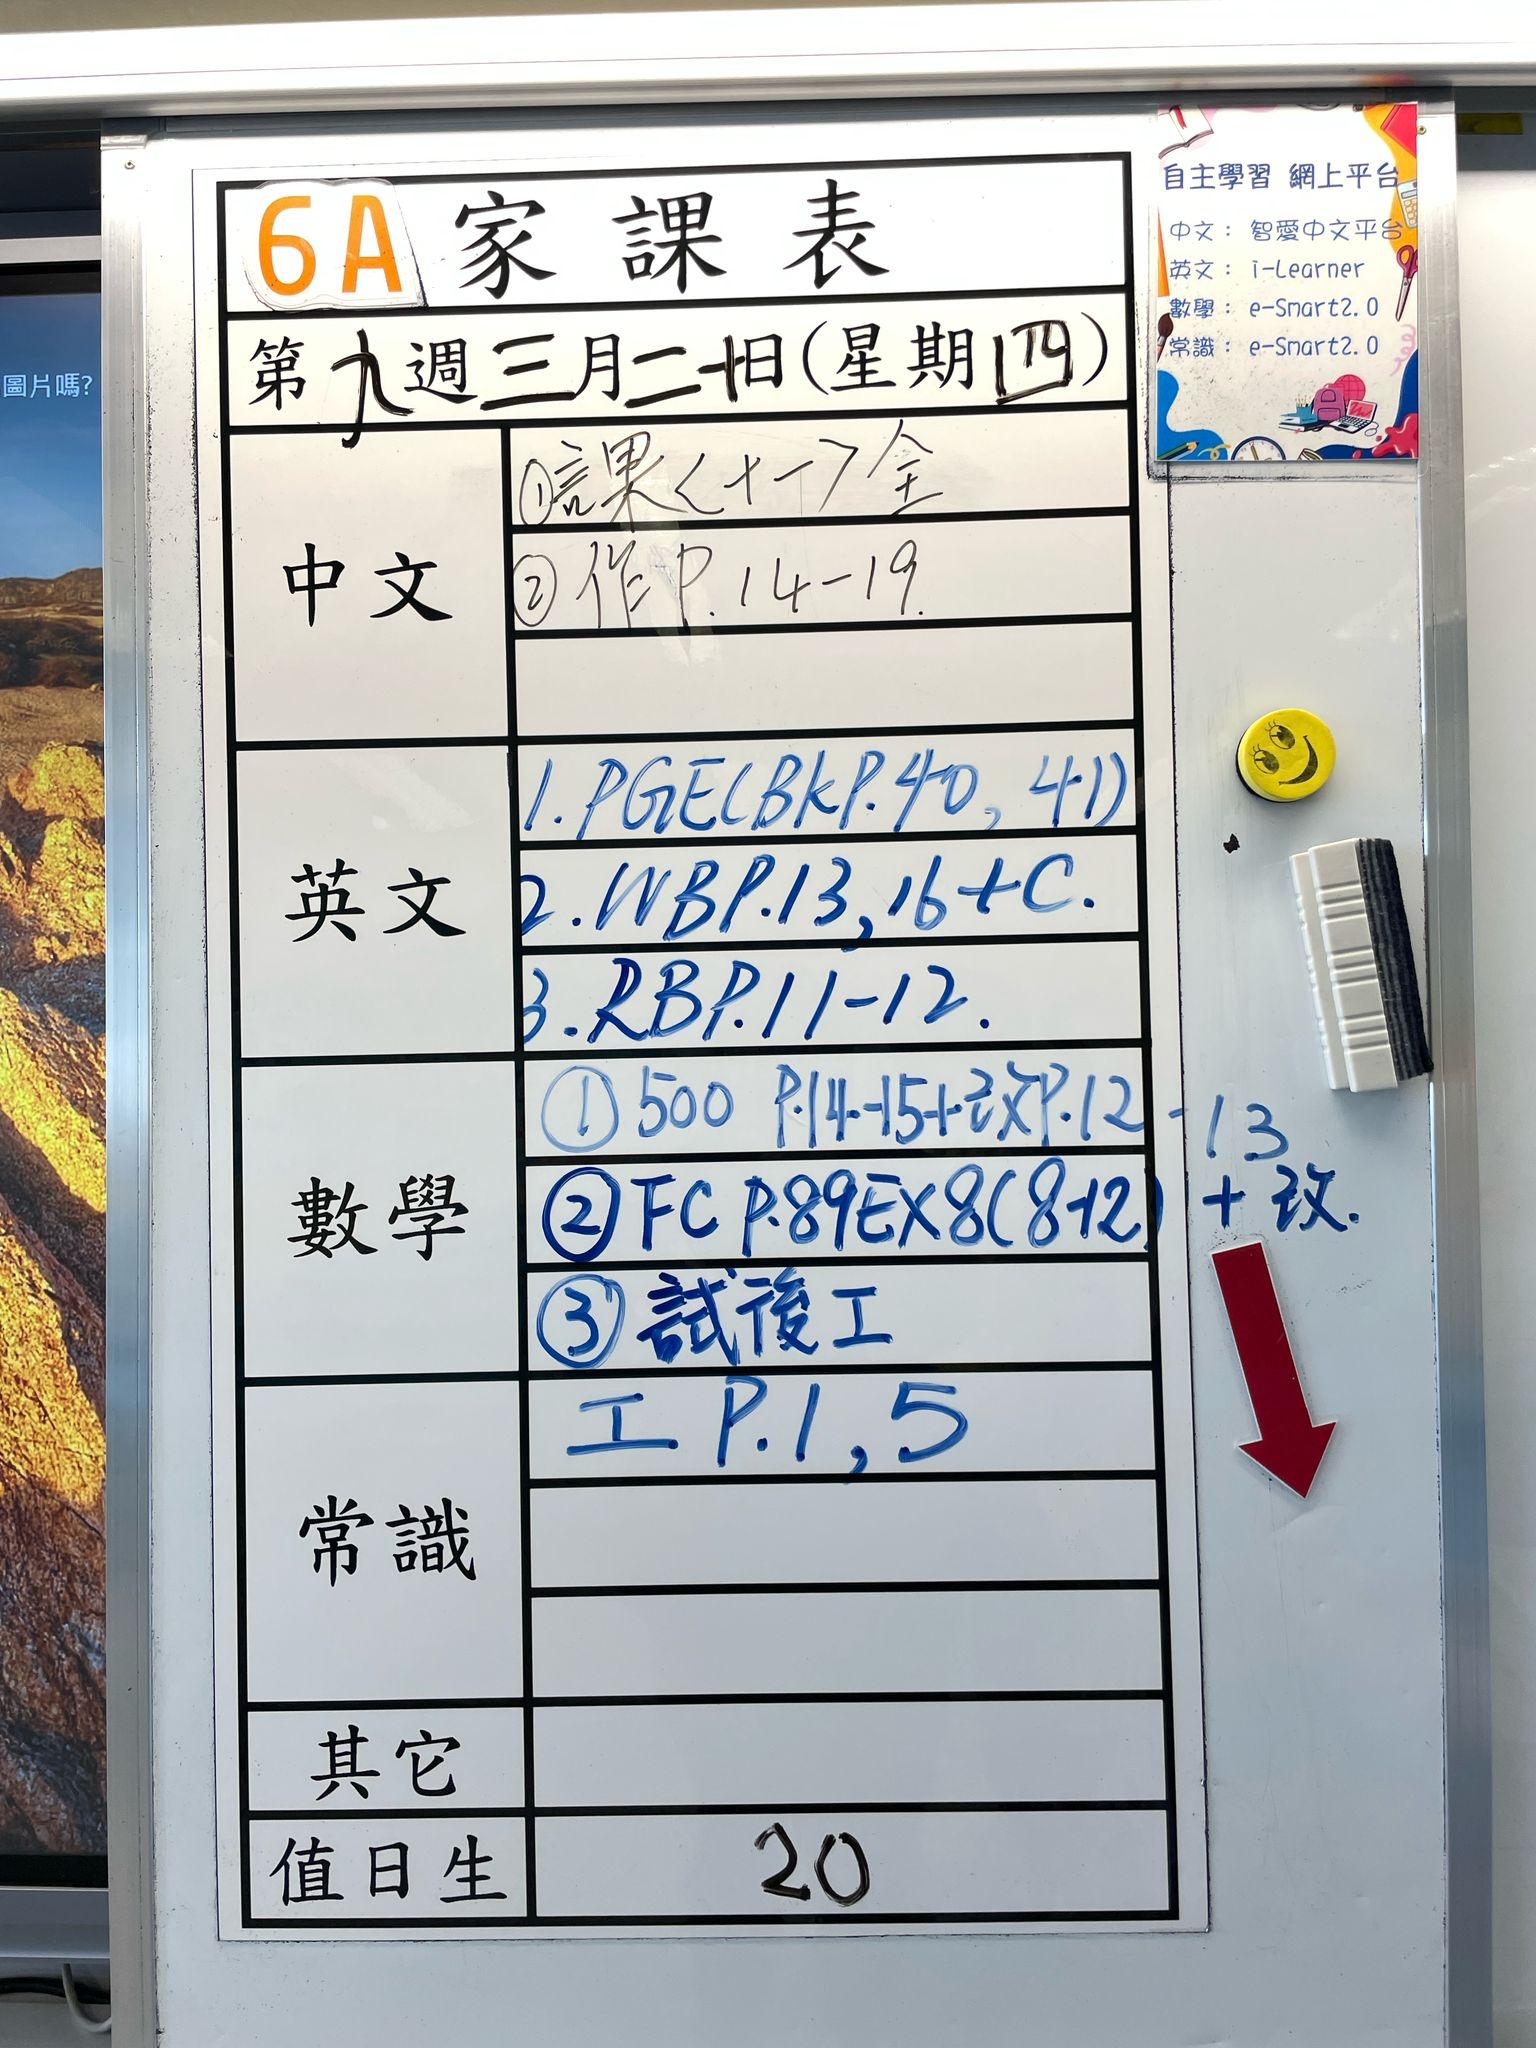 6A 家課表
第九週三月二十日(星期四)
中文
①課<十一>全
②作P.14-19.
英文
1.PGE(BkP.40, 41)
2.WBP.13,16+C.
3.RBP.11-12.
數學
①500 P.14-15+改P.12-13
②FC P.89EX8(8-12)+改.
③試後工
常識
工 P.1,5
其它
值日生
20
自主學習 網上平台
中文: 智愛中文平台
英文: i-Learner
數學: e-Smart2.0
常識: e-Smart2.0
圖片嗎?